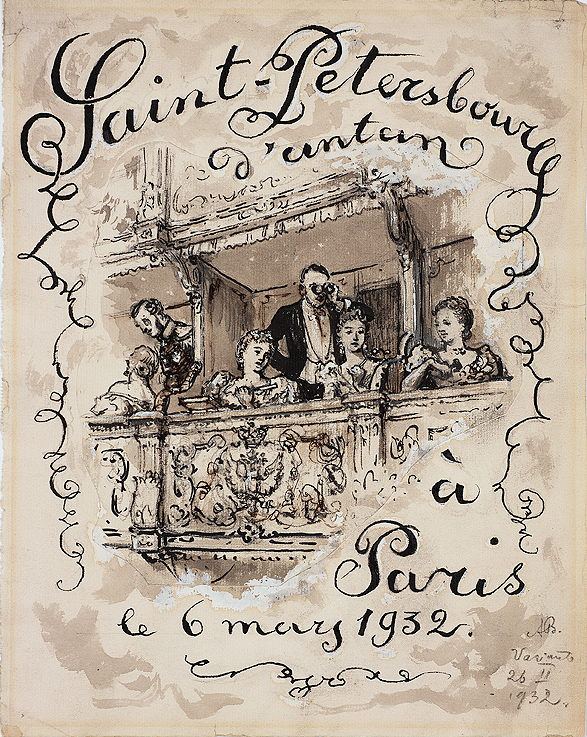 Saint-Petersbourg
d'antan
à
Paris
le 6 mars 1932.
AB.
Variante
26 II
1932.